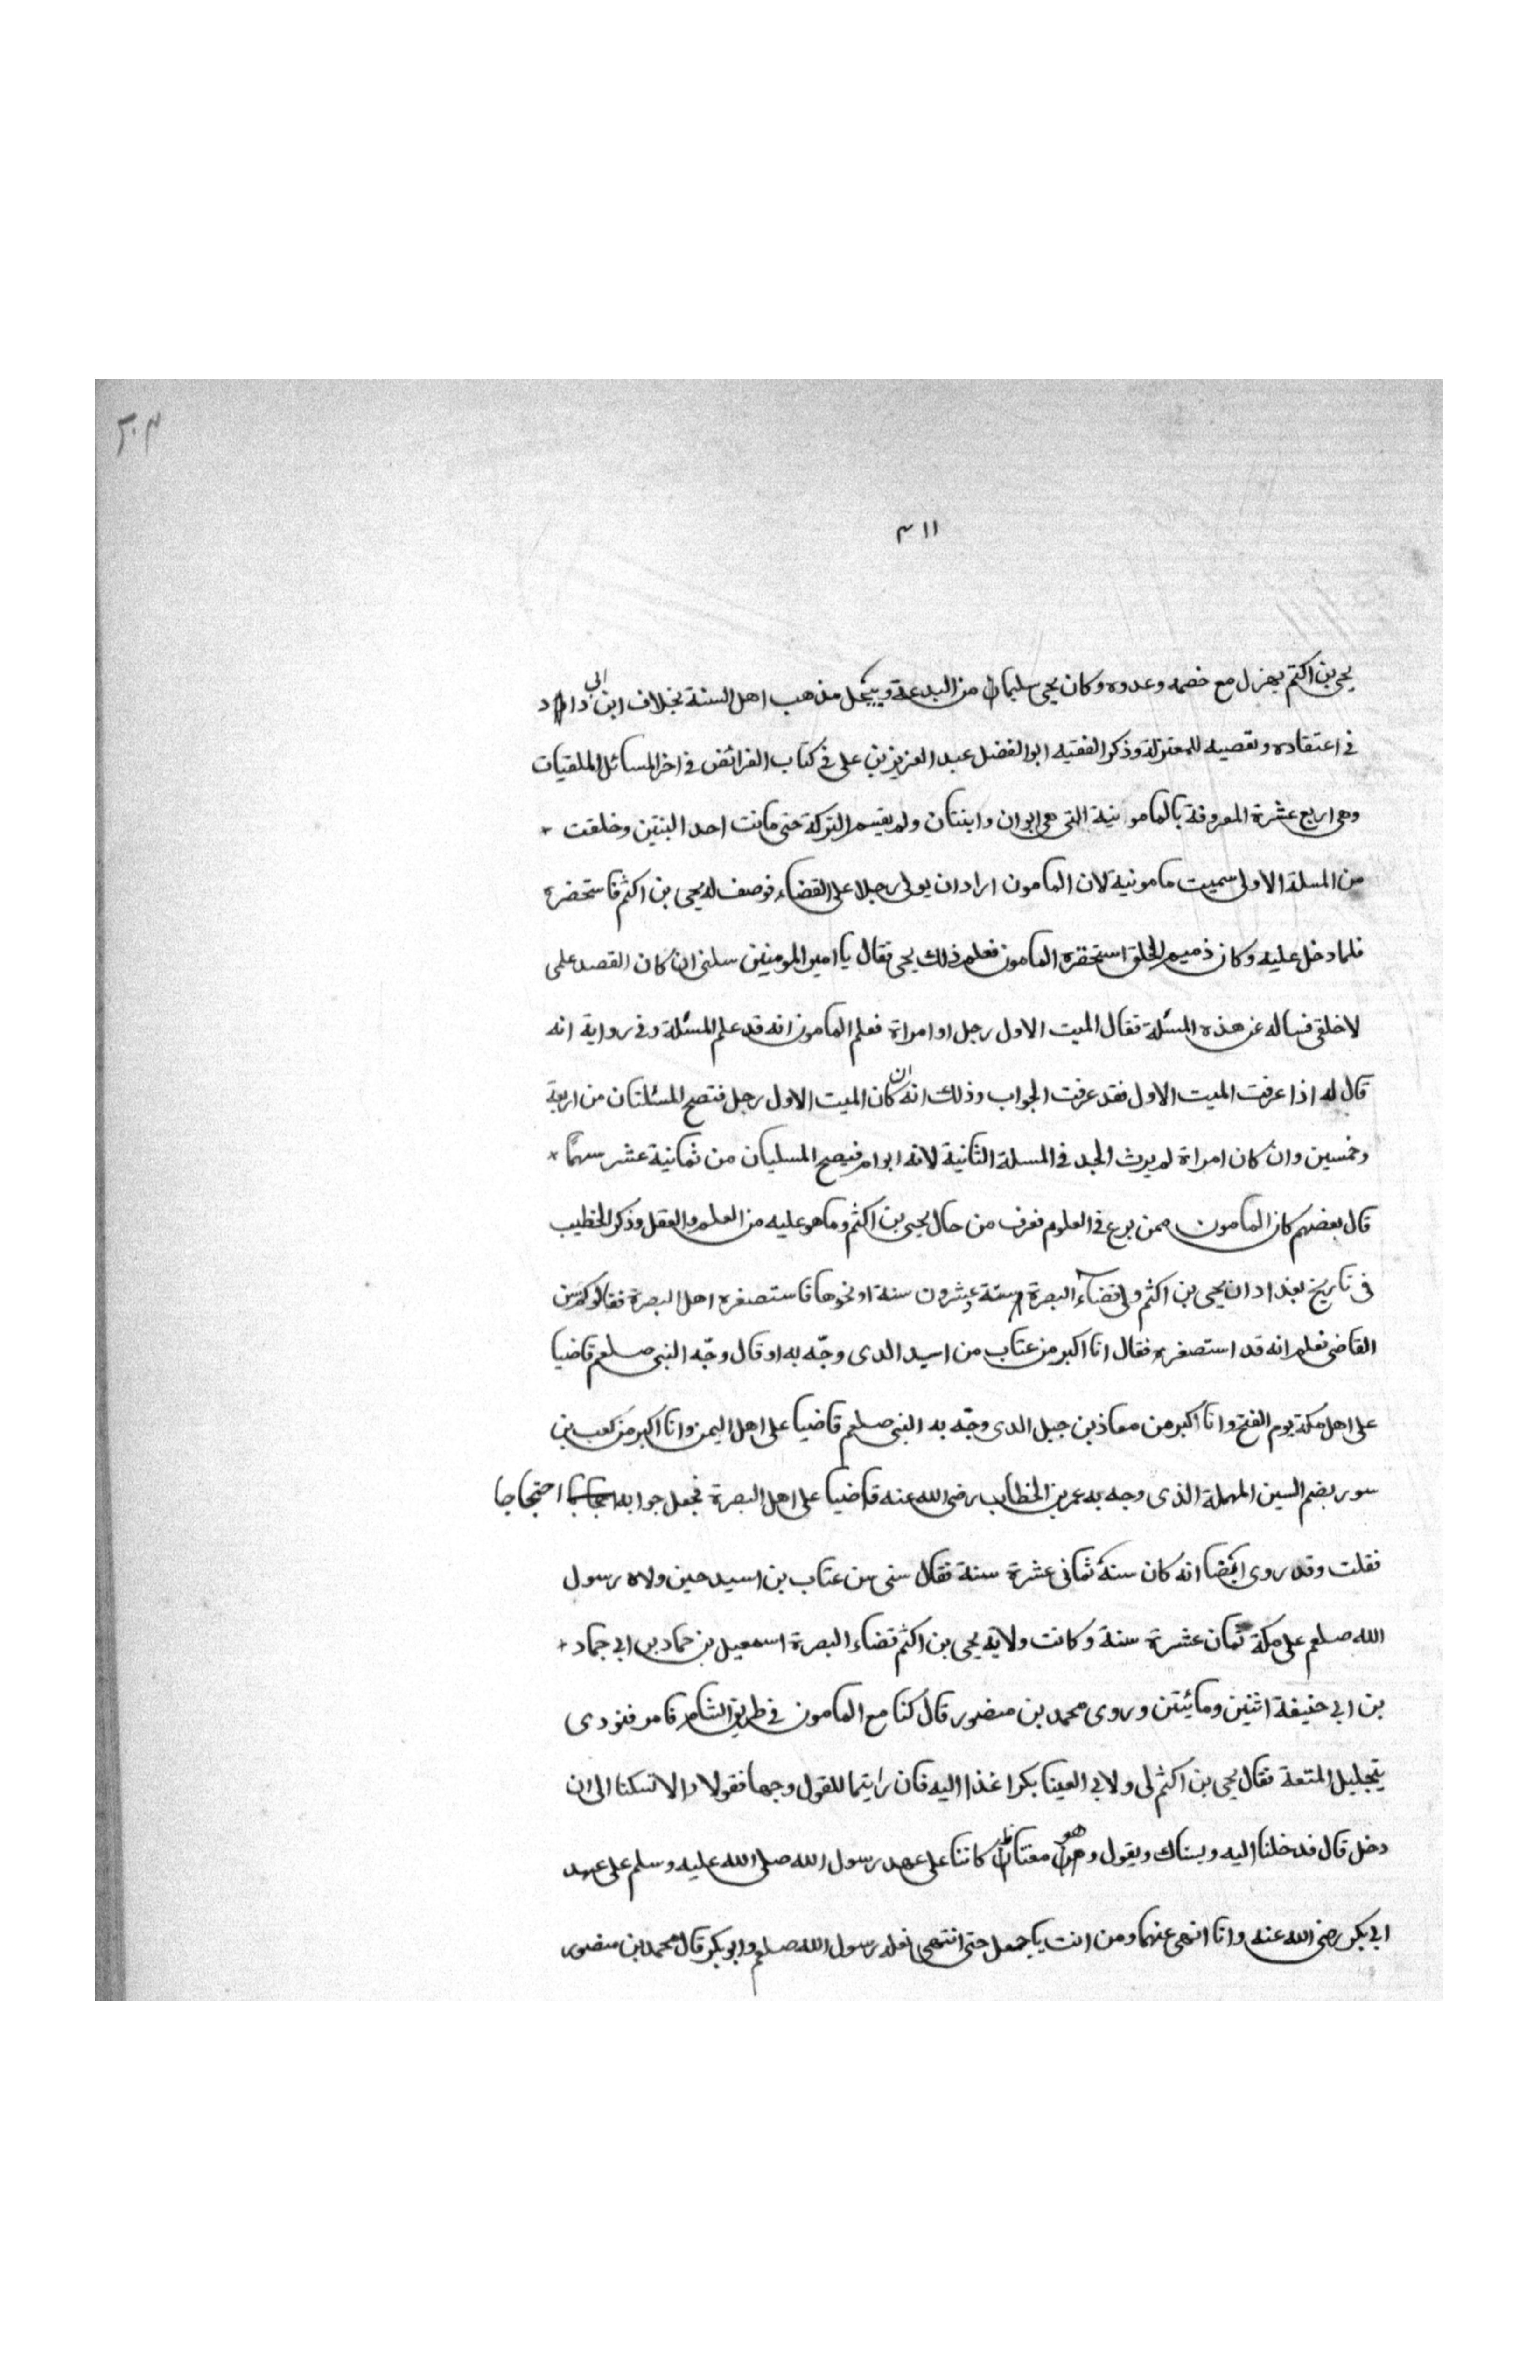 ٢٠٣
٣١١
يحيى بن اكتم يهزل مع خصمه وعدوه وكان يحيى سليمان من البدعة وينتحل مذهب اهل السنة بخلاف ابن ابي داود
في اعتقاده وتعصبه للمعتزلة وذكر الفقيه ابو الفضل عبد العزيز بن على في كتاب الفرائض في اخر المسائل الملقيات
وهى اربع عشرة المعروفة بالمامونية التى هى ابوان وابنتان ولم يقسم التركة حتى ماتت احد البنتين وخلفت
من المسلة الاولى سميت مامونية لان المامون اراد ان يولى رجلا على القضاء فوصف له يحيى بن اكثم فاستحضره
فلما دخل عليه وكان ذميم الخلق استحقره المامون فعلم ذلك يحيى فقال يا امير المومنين سلنى ان كان القصد علمى
لا خلقى فساله عن هذه المسئلة فقال الميت الاول رجل او امراة فعلم المامون انه قد علم المسئلة وفى رواية انه
قال له اذا عرفت الميت الاول فقد عرفت الجواب وذلك انه ان كان الميت الاول رجل فتصح المسئلتان من اربعة
وخمسين وان كان امراة لم يرث الجد في المسلة الثانية لانه ابوام فيصح المسليان من ثمانية عشر سهمًا
قال بعضهم كان المامون ممن برع في العلوم فعرف من حال يحيى بن اكثم وما هو عليه من العلم والعقل وذكر الخطيب
فى تاريخ بغداد ان يحيى بن اكثم ولى قضاء البصرة وسنة عشرون سنة او نحوها فاستصغره اهل البصرة فقالوا كم سن
القاضى فعلم انه قد استصغره فقال انا اكبر من عتاب من اسيد الدى وجّه به او قال وجّه النبى صلعم قاضيا
على اهل مكة يوم الفتح وانا اكبر من معاذ بن جبل الدى وجّه به النبى صلعم قاضيا على اهل اليمن وانا اكبر من كعب بن
سور بضم السين المهملة الذى وجه به عمر بن الخطاب رضى الله عنه قاضيا على اهل البصرة فجعل جوابه احتجاجا
فقلت وقد روى ايضا انه كان سنة ثمانى عشرة سنة فقال سنى سن عتاب بن اسيد حين ولاه رسول
الله صلعم على مكة ثمان عشرة سنة وكانت ولاية يحيى بن اكثم قضاء البصرة اسمعيل بن حماد بن ابي حماد
بن ابي حنيفة اثنين ومائيتن وروى محمد بن منصور قال كنا مع المامون في طريق الشام قامر فنودى
بتجليل المتعة فقال يحيى بن اكثم لى ولابي العينا بكرا غذا اليه فان رايتما للقول وجها فقولا والا تسكنا الى ان
دخل قال فدخلنا اليه ويستاك ويقول وهو معتاظ كانتا على عهد رسول الله صلى الله عليه وسلم على عهد
ابي بكر رضى الله عنه وانا انهى عنهما ومن انت يا جعل حتى انتهى فعله رسول الله صلعم وابو بكر قال محمد بن منصور